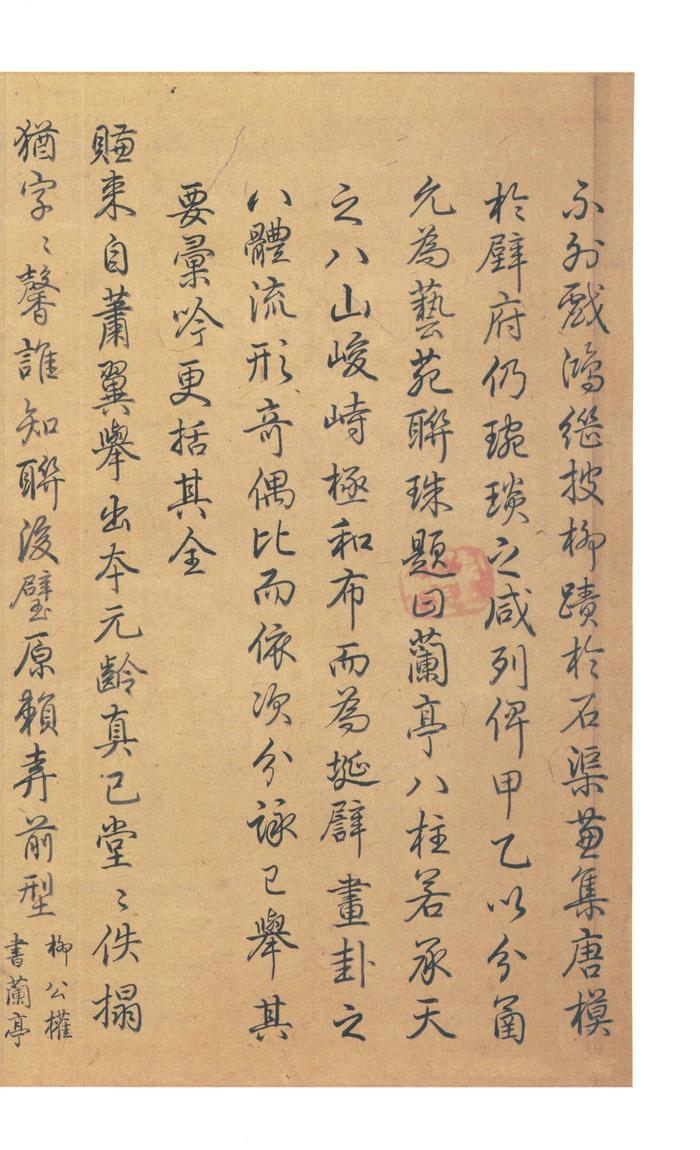 不外戲鴻繼披柳蹟於石渠薈集唐模
於壁府仍琬琰之咸列俾甲乙以分函
允為藝苑聯珠題曰蘭亭八柱若承天
之八山峻峙極和布而為埏譬畫卦之
八體流形奇偶比而依次分詠已舉其
要彙吟更括其全
賺來自蕭翼舉出本元齡真已堂〻佚搨
猶字〻馨誰知聯後璧原賴弆前型
柳公權
書蘭亭